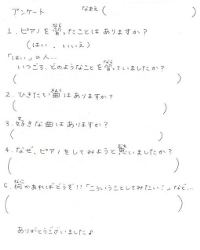 アンケート　なまえ(　　　　)
1. ピアノを習ったことはありますか?
(はい . いいえ)
「はい」の人…
いつごろ、どのようなことを習っていましたか?
(　　　　)
2. ひきたい曲はありますか?
(　　　　)
3. 好きな曲はありますか?
(　　　　)
4. なぜ、ピアノをしてみようと思いましたか?
(　　　　)
5. 何かあればどうぞ!!「こういうことしてみたい!」など…
(　　　　)
ありがとうございました♪